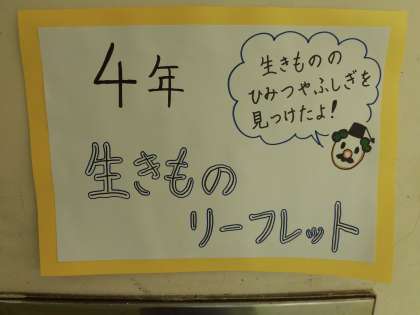 4年
生きものの
ひみつやふしぎを
見つけたよ!
生きもの
リーフレット